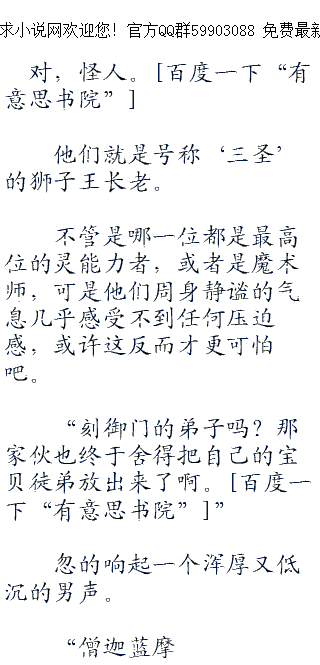 求小说网欢迎您! 官方QQ群59903088 免费最新
对，怪人。[百度一下“有
意思书院”]
他们就是号称‘三圣’
的狮子王长老。
不管是哪一位都是最高
位的灵能力者，或者是魔术
师，可是他们周身静谧的气
息几乎感受不到任何压迫
感，或许这反而才更可怕
吧。
“刻御门的弟子吗？那
家伙也终于舍得把自己的宝
贝徒弟放出来了啊。[百度一
下“有意思书院”]”
忽的响起一个浑厚又低
沉的男声。
“僧迦蓝摩